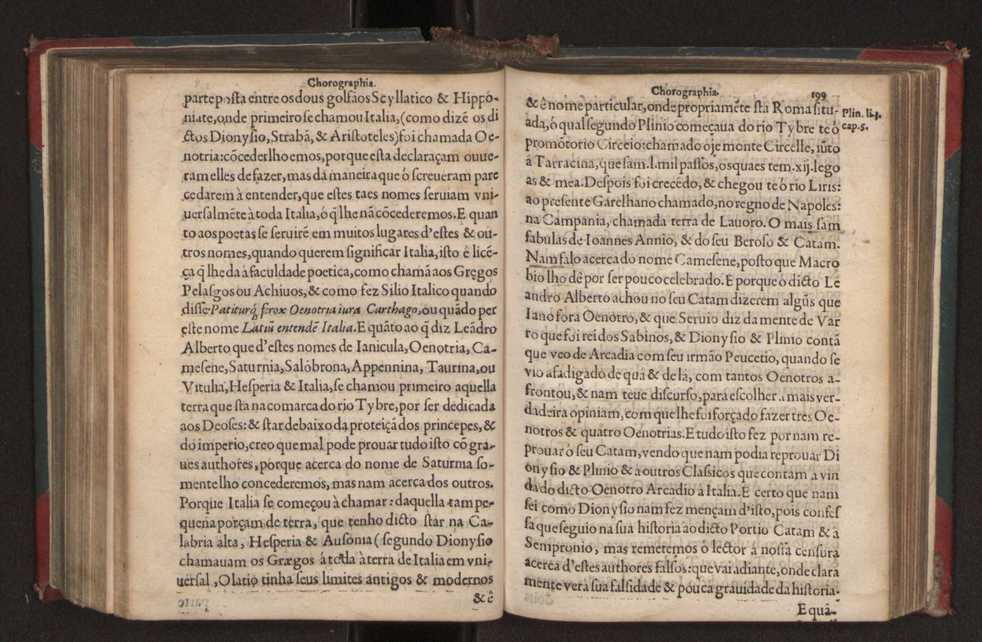 Chorographia.
parte posta entre os dous golfãos Scyllatico & Hippo-
niate, onde primeiro se chamou Italia, (como dizẽ os di
ctos Dionysio, Strabã, & Aristoteles) foi chamada Oe-
notria: cõcederlho emos, porque esta declaraçam ouue-
ram elles de fazer, mas da maneira que ò screueram pare
cedarem à entender, que estes taes nomes seruiam vni-
uersalmẽte à toda Italia, ò q̃ lhe nã cõcederemos. E quan
to aos poetas se seruirẽ em muitos lugares d'estes & ou-
tros nomes, quando querem significar Italia, isto é licẽ-
ça q̃ lhe da à faculdade poetica, como chamã aos Gregos
Pelasgos ou Achiuos, & como fez Silio Italico quando
disse Patiturq́; ferox Oenotria iura Carthago, ou quãdo per
este nome Latiũ entendẽ Italia. E quãto ao q̃ diz Leãdro
Alberto que d'estes nomes de Ianicula, Oenotria, Ca-
mesene, Saturnia, Salòbrona, Appennina, Taurina, ou
Vitulia, Hesperia & Italia, se chamou primeiro aquella
terra que sta na comarca do rio Tybre, por ser dedicada
aos Deoses: & star debaixo da proteiçã dos princepes, &
do imperio, creo que mal pode prouar tudo isto cõ gra-
ues authores, porque acerca do nome de Saturnia so-
mente lho concederemos, mas nam acerca dos outros.
Porque Italia se começou à chamar: daquella tam pe-
quena porçam de terra, que tenho dicto star na Ca-
labria alta, Hesperia & Ausonia (segundo Dionysio
chamauam os Grægos à toda à terra de Italia em vni-
uersal, O latio tinha seus limites antigos & modernos
& ê
Chorographia. 199
& ê nome particular, onde propriamẽte sta Roma situ-
ada, ò qual segundo Plinio começaua do rio Tybre te ò
promõtorio Circeio: chamado oje monte Circelle, iũto
à Tarracina, que sam. l. mil passos, os quaes tem. xij. lego
as & mea. Despois foi crecẽdo, & chegou te ò rio Liris:
ao presente Garelhano chamado, no regno de Napoles:
na Campania, chamada terra de Lauoro. O mais sam
fabulas de Ioannes Annio, & do seu Beroso & Catam.
Nam falo acerca do nome Camesene, posto que Macro
bio lho dê por ser pouco celebrado. E porque o dicto Lẽ
andro Alberto achou no seu Catam dizerem algũs que
Iano fora Oenotro, & que Seruio diz da mente de Var
ro que foi rei dos Sabinos, & Dionysio & Plinio contã
que veo de Arcadia com seu irmão Peucetio, quando se
vio afadigado de quà & de là, com tantos Oenotros a-
frontou, & nam teue discurso, para escolher a mais ver-
dadeira opiniam, com que lhe foi forçado fazer tres Oe-
notros & quatro Oenotrias. E tudo isto fez por nam re-
prouar ò seu Catam, vendo que nam podia reprouar Di
onysio & Plinio & à outros Classicos que contam a vin
da do dicto Oenotro Arcadio à Italia. E certo que nam
sei como Dionysio nam fez mençam d'isto, pois confes
sa que seguio na sua historia ao dicto Portio Catam & à
Sempronio, mas remetemos ò lector à nossa censura
acerca d'estes authores falsos: que vai adiante, onde clara
mente vera sua falsidade & pouca grauidade da historia.
E quã-
Plin. li. 3.
cap. 5.